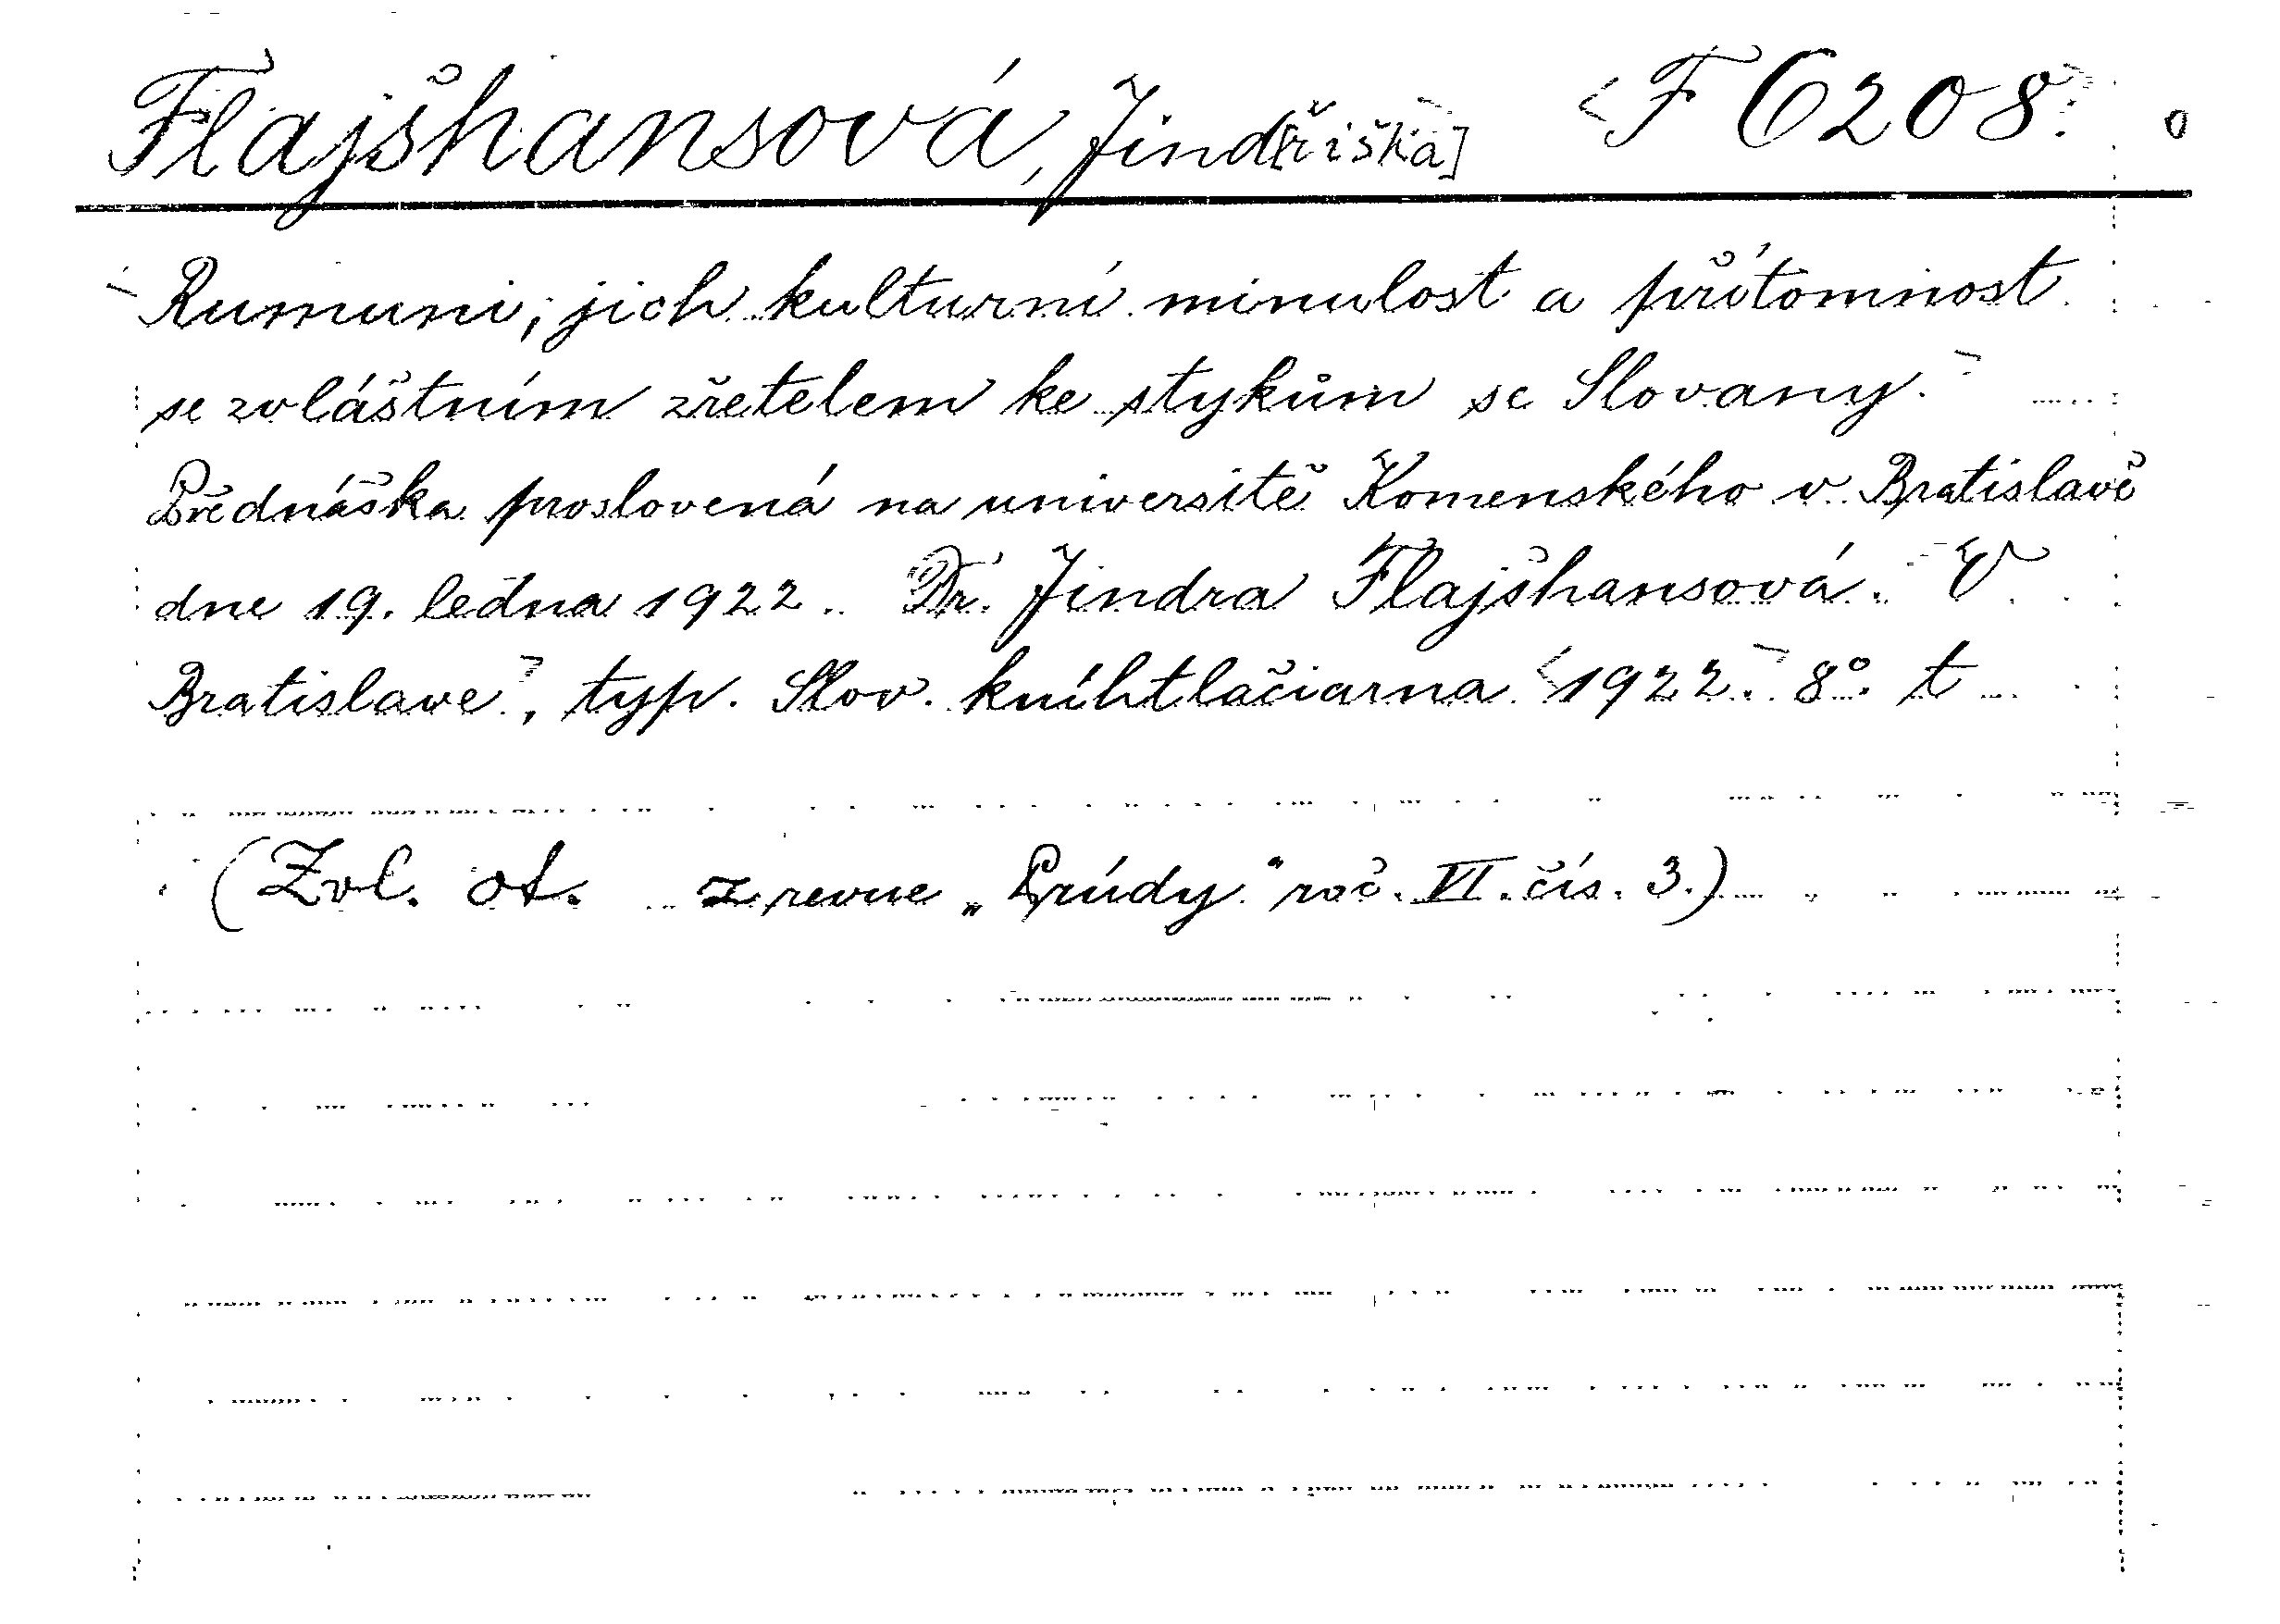 Flajšhansová, Jind[řiška] F 6208.
Rumuni, jich kulturní minulost a přítomnost
se zvláštním zřetelem ke stykům se Slovany.
Přednáška proslovená na universitě Komenského v Bratislavě
dne 19. ledna 1922. Dr. Jindra Flajšhansová. V
Bratislave, typ. Slov. kníhtlačiarna 1922. 8°. t
(Zvl. ot. z revue „Prúdy" roč. VI. čís. 3.)